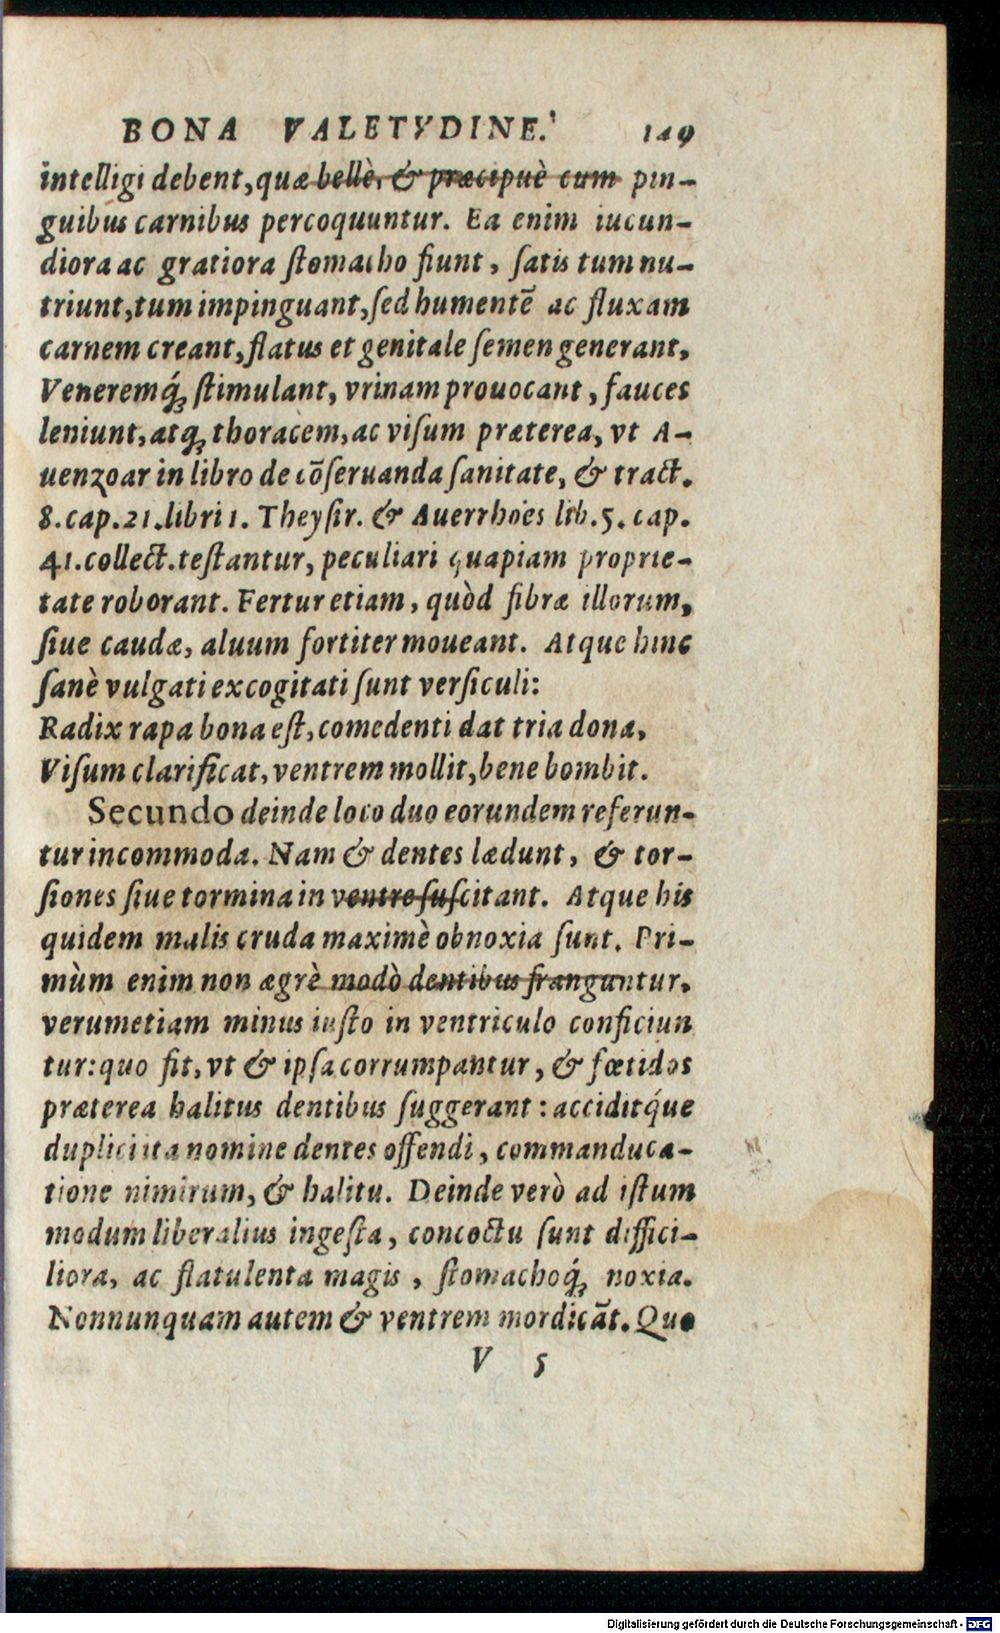 BONA VALETVDINE. 149
intelligi debent, quæ bellè, & præcipuè cum pin-
guibus carnibus percoquuntur. Ea enim iucun-
diora ac gratiora ſtomacho fiunt, ſatis tum nu-
triunt, tum impinguant, ſed humentē ac fluxam
carnem creant, flatus et genitale ſemen generant,
Veneremq́; ſtimulant, vrinam prouocant, fauces
leniunt, atq; thoracem, ac viſum præterea, vt A-
uenzoar in libro de cōſeruanda ſanitate, & tract.
8. cap. 21. libri 1. Theyſir. & Auerrhoës lib. 5. cap.
41. collect. teſtantur, peculiari quapiam proprie-
tate roborant. Fertur etiam, quòd fibræ illorum,
ſiue caudæ, aluum fortiter moueant. Atque hinc
ſanè vulgati excogitati ſunt verſiculi:
Radix rapa bona eſt, comedenti dat tria dona,
Viſum clarificat, ventrem mollit, bene bombit.
Secundo deinde loco duo eorundem referun-
tur incommoda. Nam & dentes lædunt, & tor-
ſiones ſiue tormina in ventre ſuſcitant. Atque his
quidem malis cruda maximè obnoxia ſunt. Pri-
mùm enim non ægrè modò dentibus franguntur,
verumetiam minus iuſto in ventriculo conficiun
tur: quo fit, vt & ipſa corrumpantur, & fœtidos
præterea halitus dentibus ſuggerant: acciditq́ue
duplici ita nomine dentes offendi, commanduca-
tione nimirum, & halitu. Deinde verò ad iſtum
modum liberalius ingeſta, concoctu ſunt diffici-
liora, ac flatulenta magis, ſtomachoq́; noxia.
Nonnunquam autem & ventrem mordicāt. Quo
V 5
Digitalisierung gefördert durch die Deutsche Forschungsgemeinschaft - DFG